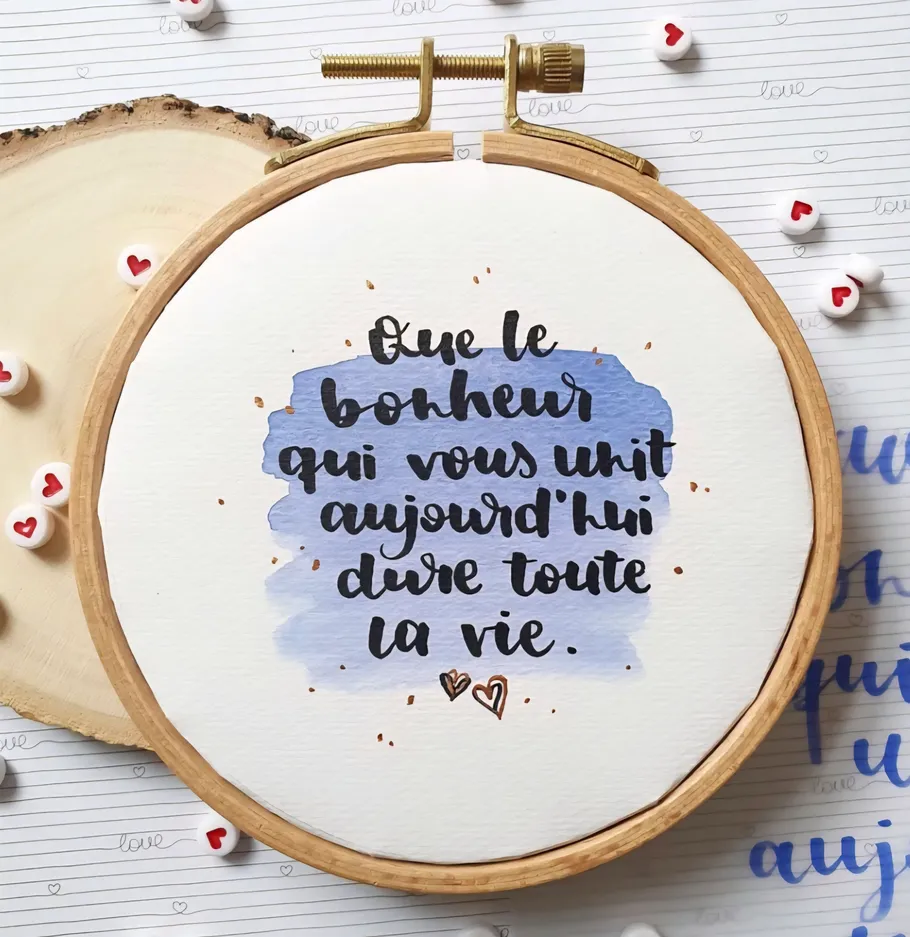 love
love
love
love
love
love
Que le
bonheur
qui vous unit
aujourd'hui
dure toute
la vie.
qui
love
love